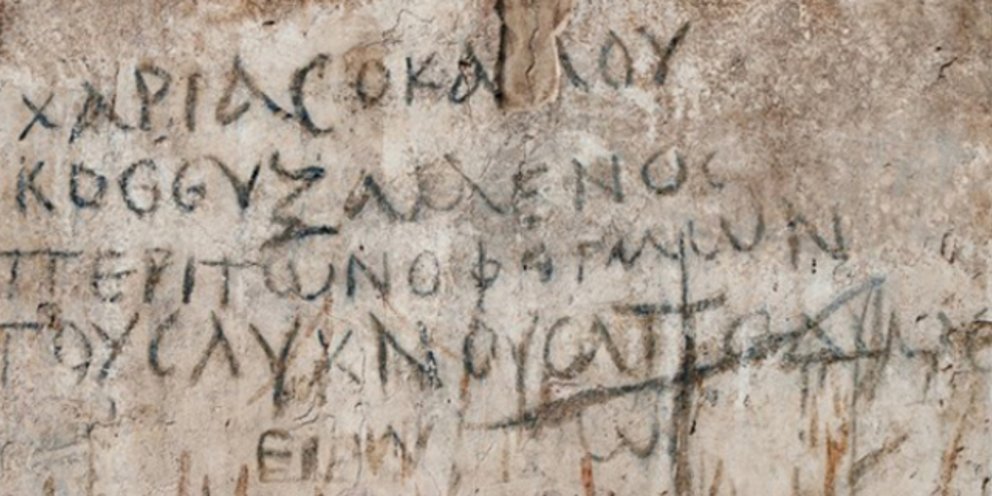 ΧΑΡΙΑϹ Ο ΚΑ ΛΟΥ
ΚΟϹ ΕΥΞΑΜΕΝΟϹ
ΠΕΡΙ ΤΩΝ ΟΦΘΑΛΜΩΝ
ΤΟΥϹ ΛΥΧΝΟΥϹ